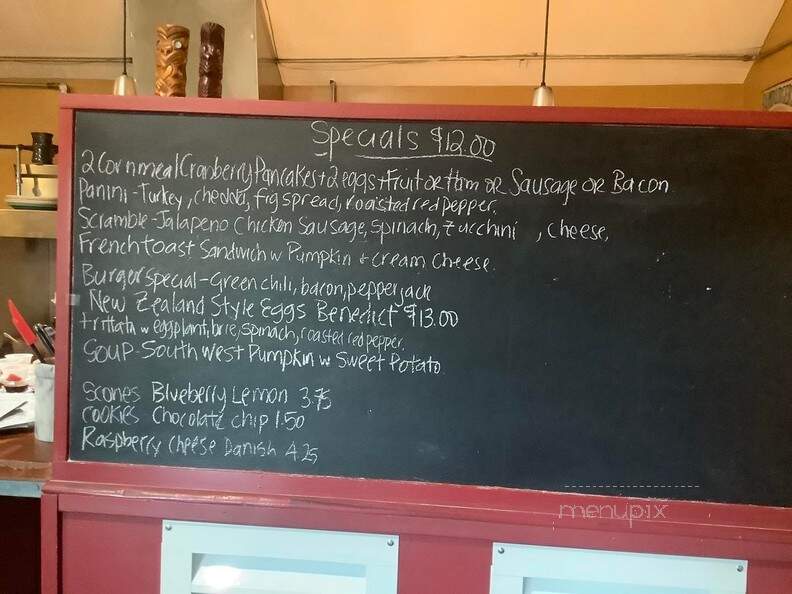 Specials $12.00
2 Cornmeal Cranberry Pancakes + 2 eggs + Fruit or Ham or Sausage or Bacon
Panini - Turkey, chedda, fig spread, roasted red pepper.
Scramble - Jalapeno Chicken Sausage, Spinach, Zucchini , Cheese,
French toast Sandwich w Pumpkin + Cream Cheese.
Burger Special - Green chili, bacon, pepper jack
New Zealand Style Eggs Benedict $13.00
Frittata w eggplant, brie, spinach, roasted red pepper.
Soup - South West Pumpkin w Sweet Potato
Scones Blueberry Lemon 3.75
Cookies Chocolate chip 1.50
Raspberry Cheese Danish 4.25
menupix